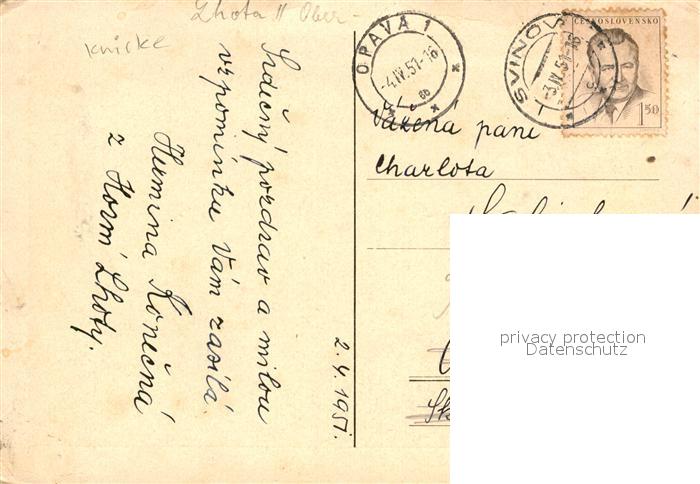 Lhota II Ober-
knicke
Srdečný pozdrav a milou
vzpomínku Vám zasílá
Hermina Konečná
z Horní Lhoty.
2. 4. 1951.
OPAVA 1
-4.IV.51-16
6b
SVINOV 1
-3.IV.51-18
ČESKOSLOVENSKO
1.50
Vážená paní
Charlota
privacy protection
Datenschutz